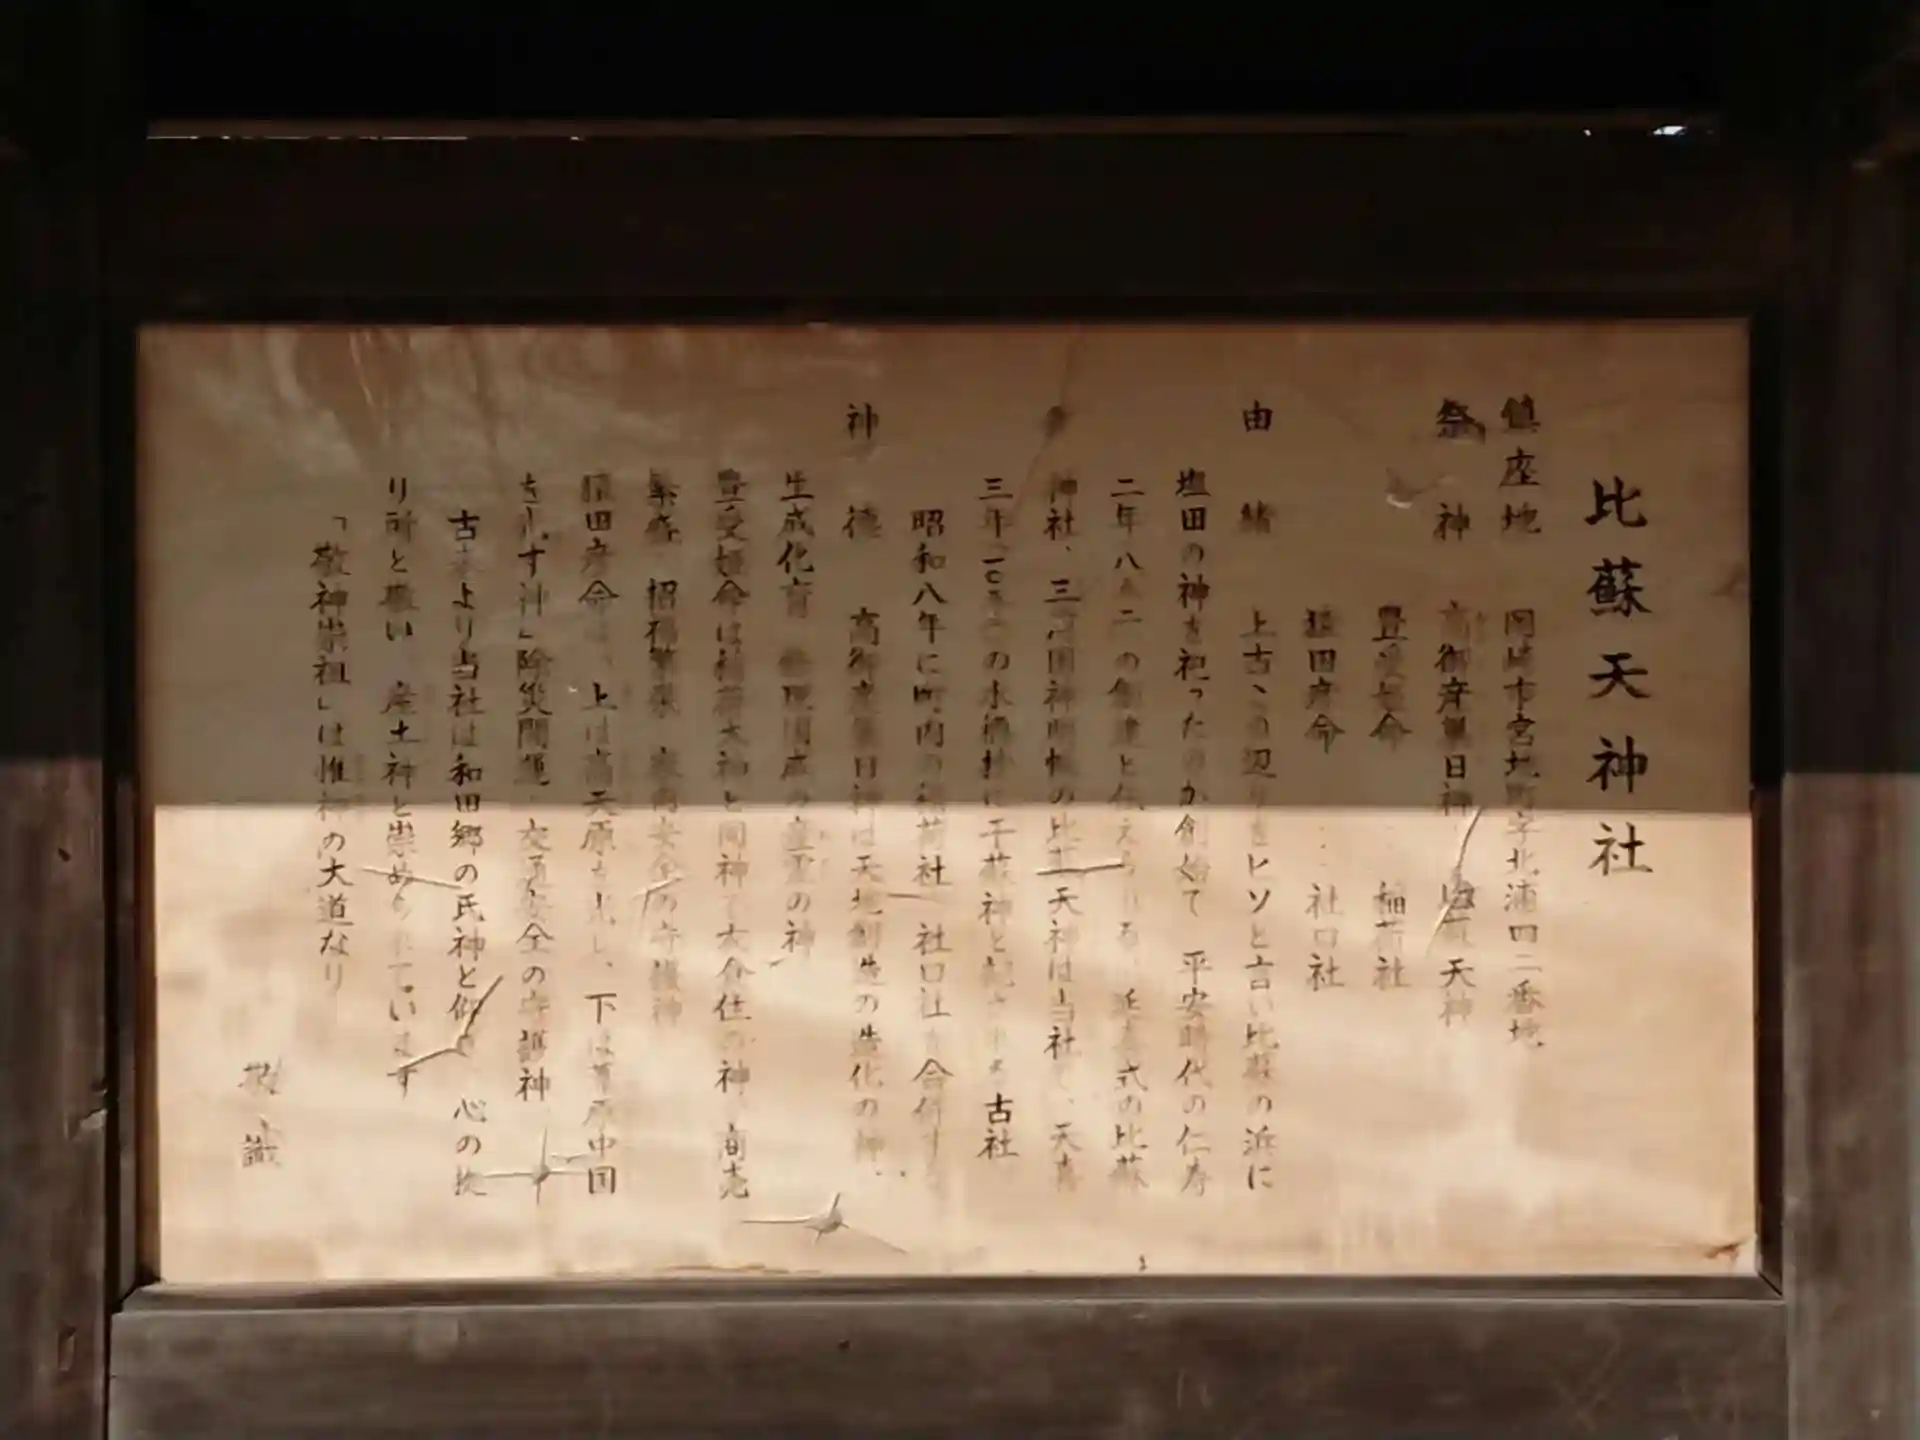 比蘇天神社
鎮座地 岡崎市宮地町字北浦四二番地
祭神 高御産巣日神 天神
豊受姫命 稲荷社
猿田彦命 社口社
由緒 上古この辺りをヒソと言い比蘇の浜に
塩田の神を祀ったのが創始で 平安時代の仁寿
二年八五二の創建と伝えられる、延喜式の比蘇
神社、三河国神明帳の比蘇天神は当社で、天喜
三年 の水 に 蘇神と記 古社
昭和八年に町内の稲荷社 社口社を合併する
神徳 高御産巣日神は天地創造の造化の神、
生成化育 修理固成の産霊の神
豊受姫命は稲荷大神と同神で 神 商売
繁盛 招福繁栄 家内安全の守護神
猿田彦命は、上は高天原を光し、下は葦原中国
を光す神」除災開運 交通安全の守護神
古来より当社は和田郷の氏神と仰ぎ 心の拠
り所と敬い、産土神と崇められています
「敬神崇祖」は惟神の大道なり
敬識